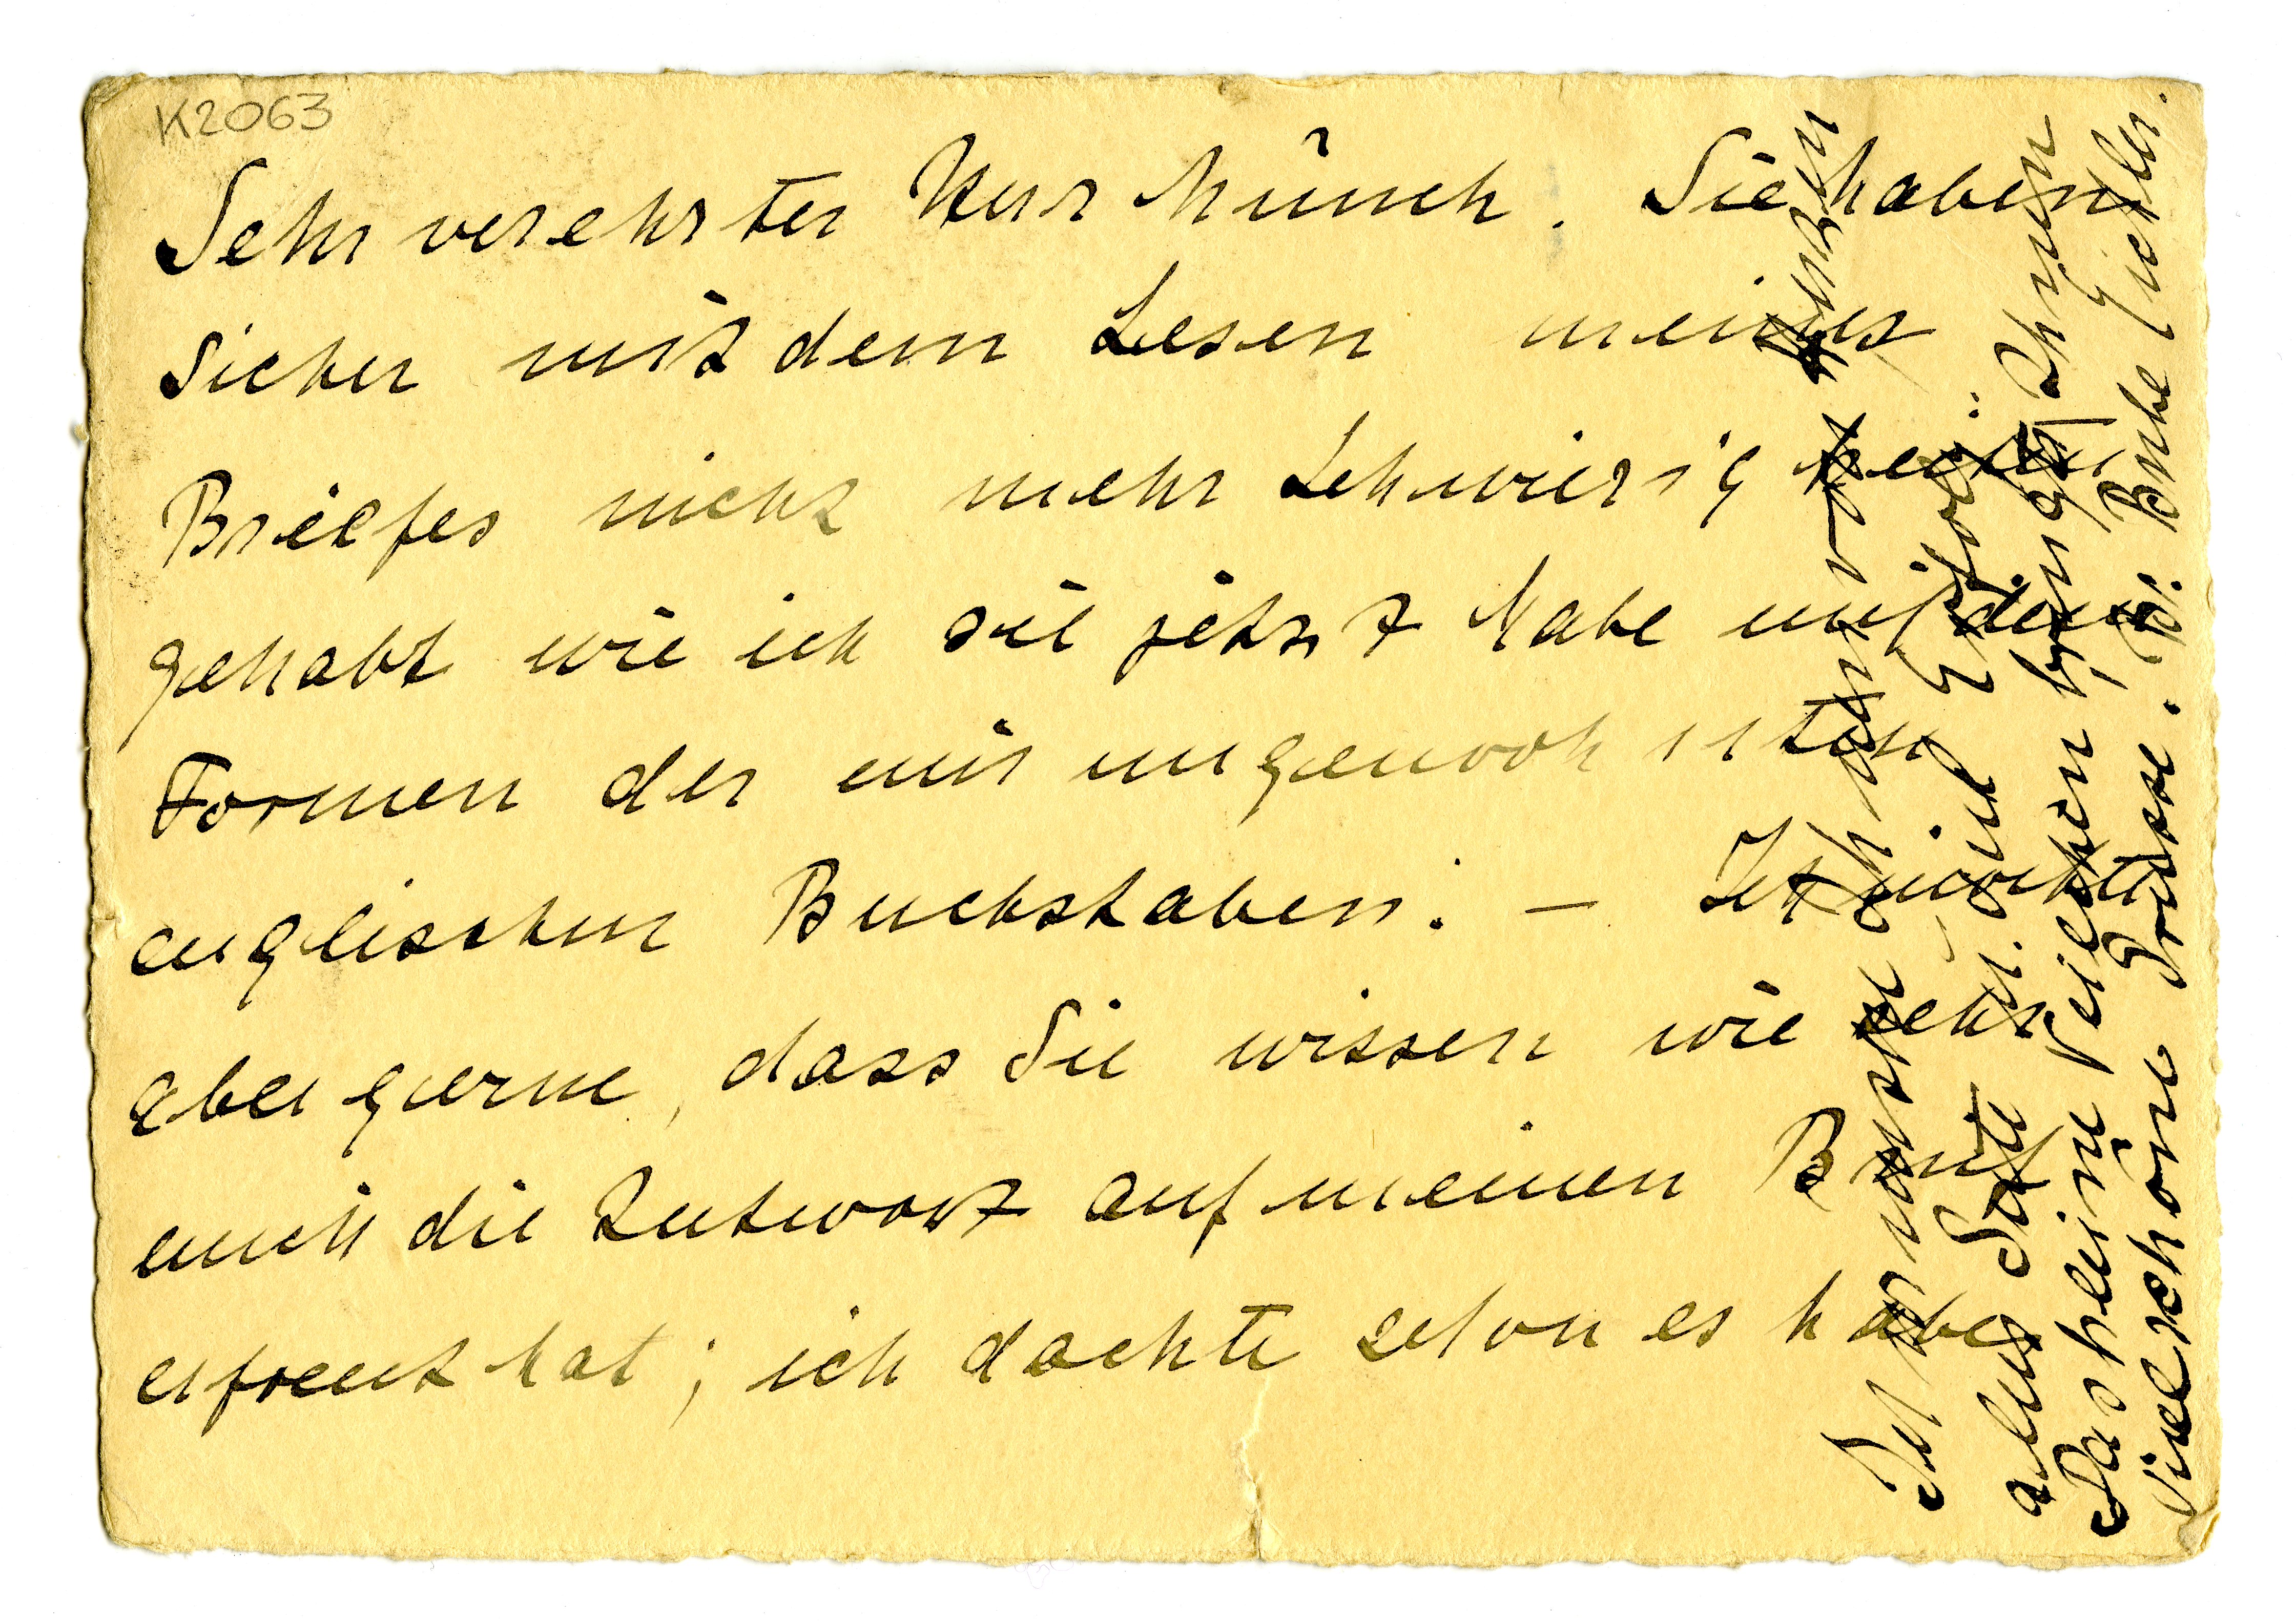 K2063
Sehr verehrter Herr Münch. Sie haben
sicher mit dem Lesen meines
Briefes nicht mehr Schwierigkeiten
gehabt wie ich sie jetzt habe mit den
Formen der mir ungewohnten
englischen Buchstaben. — Ich möchte
aber gerne, dass Sie wissen wie sehr
mich die Antwort auf meinen Brief
erfreut hat; ich dachte schon es habe
Ich wünsche Ihnen von Herzen
alles Gute u. viel Erfolg.
Das kleine Veilchen bringt Ihnen
viele schöne Grüsse. Ihr